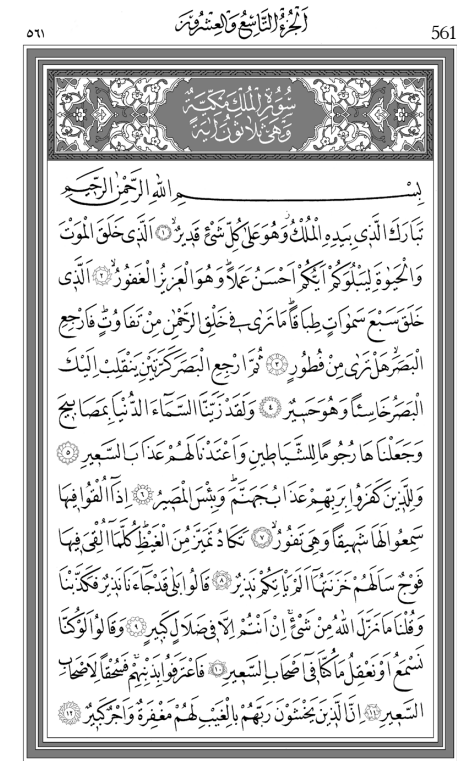 ٥٦١ اَلْجُزْءُ التَّاسِعُ وَالْعِشْرُونَ 561
سُورَةُ الْمُلْكِ مَكِّيَّةٌ
وَهِيَ ثَلَاثُونَ اٰيَةً
بِسْمِ اللّٰهِ الرَّحْمٰنِ الرَّحٖيمِ
تَبَارَكَ الَّذٖي بِيَدِهِ الْمُلْكُۘ وَهُوَ عَلٰى كُلِّ شَيْءٍ قَدٖيرٌۙ ﴿١﴾ اَلَّذٖي خَلَقَ الْمَوْتَ
وَالْحَيٰوةَ لِيَبْلُوَكُمْ اَيُّكُمْ اَحْسَنُ عَمَلاًؕ وَهُوَ الْعَزٖيزُ الْغَفُورُۙ ﴿٢﴾ اَلَّذٖي
خَلَقَ سَبْعَ سَمٰوَاتٍ طِبَاقاًؕ مَا تَرٰى فٖي خَلْقِ الرَّحْمٰنِ مِنْ تَفَاوُتٍؕ فَارْجِعِ
الْبَصَرَۙ هَلْ تَرٰى مِنْ فُطُورٍ ﴿٣﴾ ثُمَّ ارْجِعِ الْبَصَرَ كَرَّتَيْنِ يَنْقَلِبْ اِلَيْكَ
الْبَصَرُ خَاسِئاً وَهُوَ حَسٖيرٌ ﴿٤﴾ وَلَقَدْ زَيَّنَّا السَّمَٓاءَ الدُّنْيَا بِمَصَابٖيحَ
وَجَعَلْنَاهَا رُجُوماً لِلشَّيَاطٖينِ وَاَعْتَدْنَا لَهُمْ عَذَابَ السَّعٖيرِ ﴿٥﴾
وَلِلَّذٖينَ كَفَرُوا بِرَبِّهِمْ عَذَابُ جَهَنَّمَؕ وَبِئْسَ الْمَصٖيرُ ﴿٦﴾ اِذَٓا اُلْقُوا فٖيهَا
سَمِعُوا لَهَا شَهٖيقاً وَهِيَ تَفُورُۙ ﴿٧﴾ تَكَادُ تَمَيَّزُ مِنَ الْغَيْظِؕ كُلَّمَٓا اُلْقِيَ فٖيهَا
فَوْجٌ سَاَلَهُمْ خَزَنَتُهَٓا اَلَمْ يَأْتِكُمْ نَذٖيرٌ ﴿٨﴾ قَالُوا بَلٰى قَدْ جَٓاءَنَا نَذٖيرٌ فَكَذَّبْنَا
وَقُلْنَا مَا نَزَّلَ اللّٰهُ مِنْ شَيْءٍۚ اِنْ اَنْتُمْ اِلَّا فٖي ضَلَالٍ كَبٖيرٍ ﴿٩﴾ وَقَالُوا لَوْ كُنَّا
نَسْمَعُ اَوْ نَعْقِلُ مَا كُنَّا فٖٓي اَصْحَابِ السَّعٖيرِ ﴿١٠﴾ فَاعْتَرَفُوا بِذَنْبِهِمْۚ فَسُحْقاً لِاَصْحَابِ
السَّعٖيرِ ﴿١١﴾ اِنَّ الَّذٖينَ يَخْشَوْنَ رَبَّهُمْ بِالْغَيْبِ لَهُمْ مَغْفِرَةٌ وَاَجْرٌ كَبٖيرٌ ﴿١٢﴾